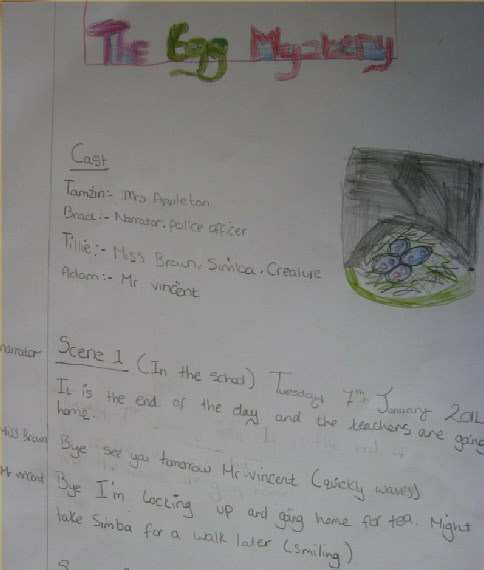 The Egg Mystery
Cast
Tamzin:- Mrs Appleton
Brad:- Narrator, police officer
Tillie:- Miss Brown, Simba, Creature
Adam:- Mr vincent
Scene 1 (In the school) Tuesday 7th January 2014
narrator It is the end of the day and the teachers are going
home.
Miss Brown Bye see you tomorrow Mr vincent (quickly waves)
Mr vincent Bye I'm locking up and going home for tea. Might
take Simba for a walk later (smiling)